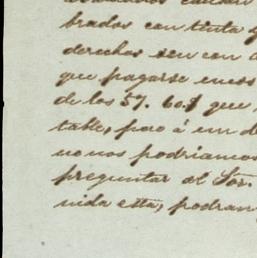 brados con tinta
derechos son con
que pagarse
de los 57. 60.$ que
table, pero á un
no nos podriamos
preguntar al Sor.
nida esta, podran